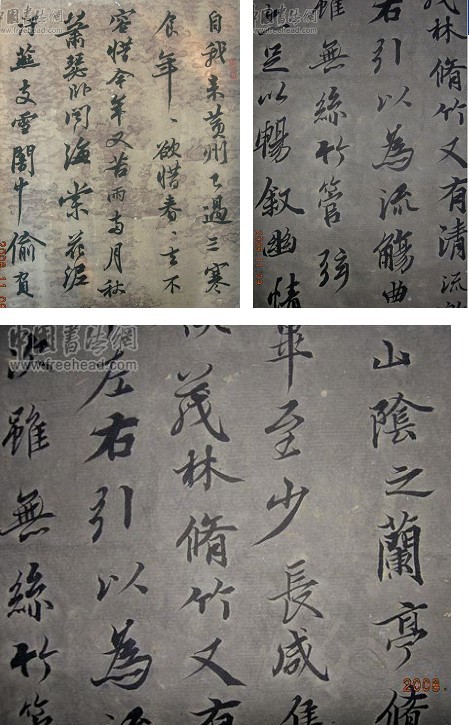 中国書法網
www.freehead.com
自我來黃州已過三寒
食年、欲惜春、去不
容惜今年又苦雨两月秋
蕭瑟卧聞海棠花泥
燕支雪闇中偷負
中国書法網
www.freehead.com
茂林脩竹又有清流
右引以為流觴曲
雖無絲竹管弦
足以暢叙幽情
中国書法網
www.freehead.com
山陰之蘭亭脩
畢至少長咸集
茂林脩竹又有
左右引以為
雖無絲竹管
2008.